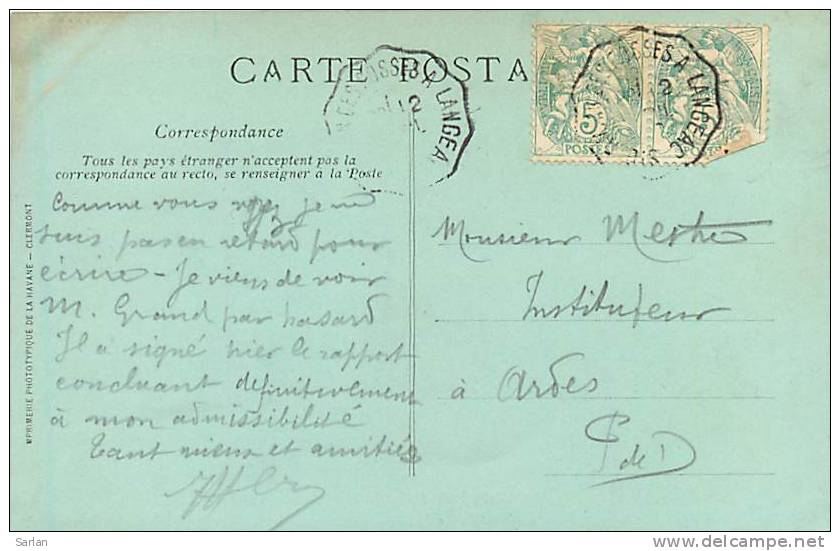 CARTE POSTA
A LANGEA
12
SES A LANGEAC
12
5c
POSTES
Correspondance
Tous les pays étranger n'acceptent pas la
correspondance au recto, se renseigner à la Poste
Comme vous voyez je ne
suis pas en retard pour
écrire - Je viens de voir
M. Grand par hasard
Il a signé hier le rapport
concluant definitivement
à mon admissibilité
Tant mieux et amitiés
Monsieur
Instituteur
à Ardes
P de D
MPRIMERIE PHOTOTYPIQUE DE LA HAVANE — CLERMONT
Sarlan
delcampe.net